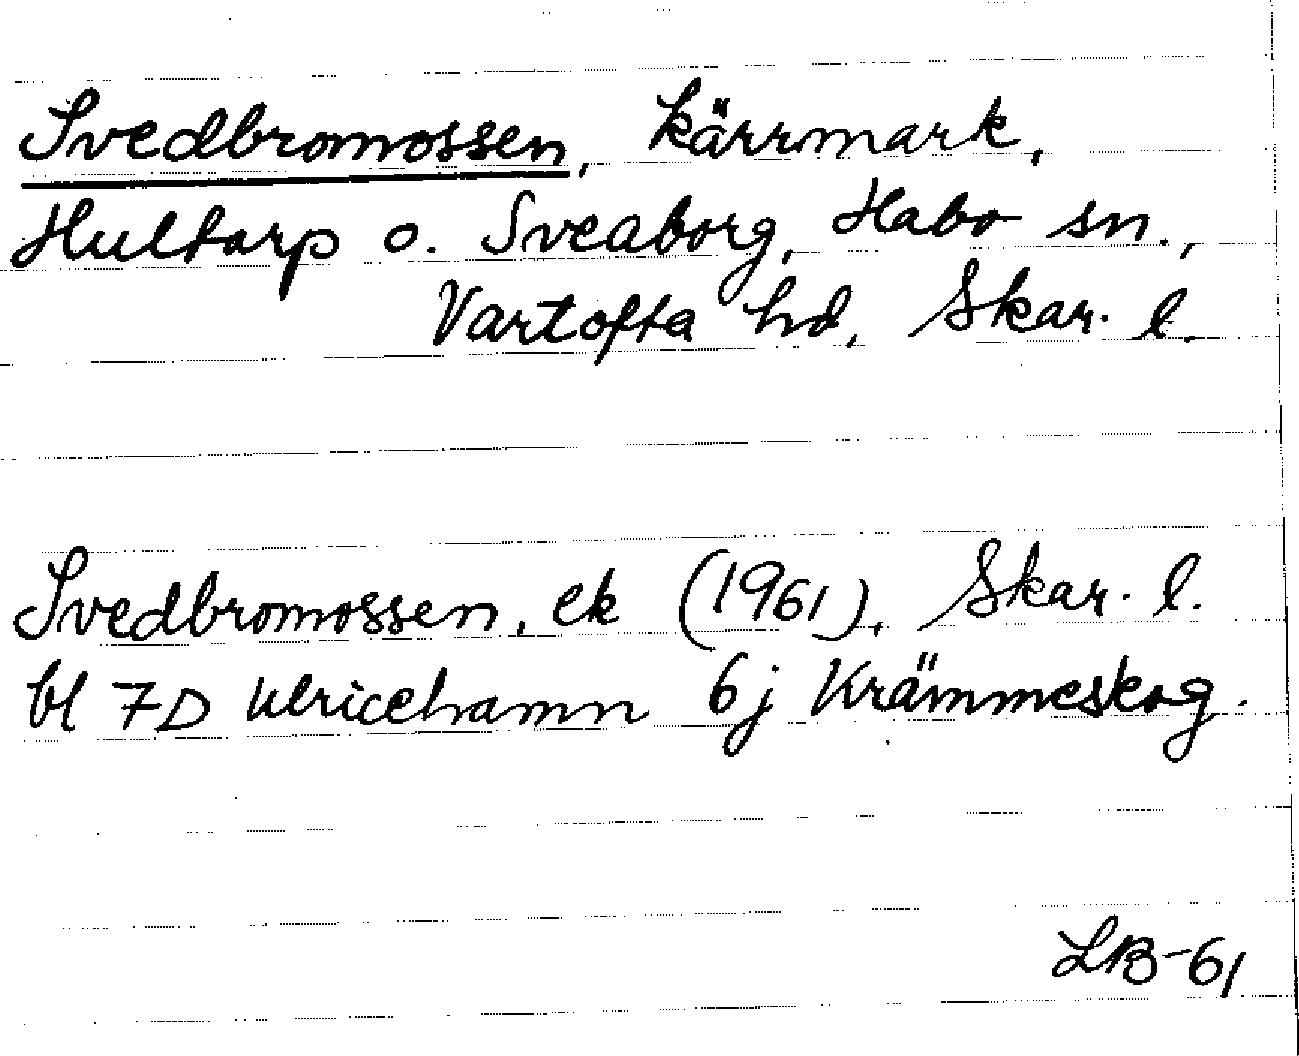 Svedbromossen, kärrmark,
Hultarp o. Sveaborg, Habo sn.,
Vartofta hd, Skar. l.
Svedbromossen, ek (1961), Skar. l.
bl 7D Ulricehamn 6j Krämmeskog.
LB-61